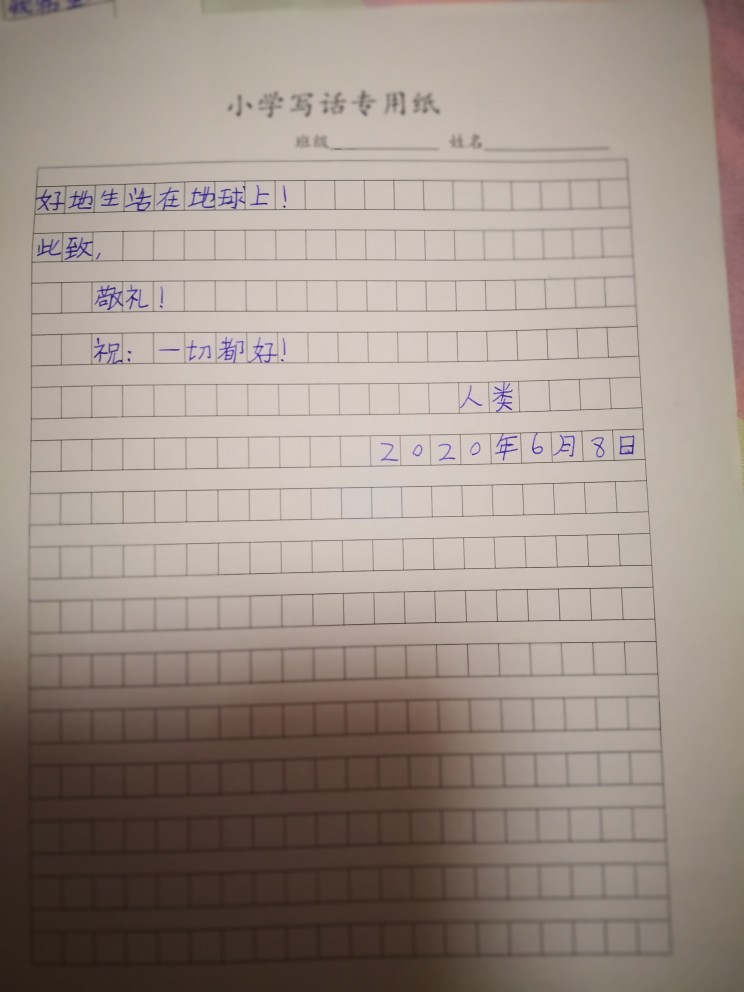 小学写话专用纸
班级 姓名
好地生活在地球上！
此致,
敬礼！
祝：一切都好！
人类
2020年6月8日